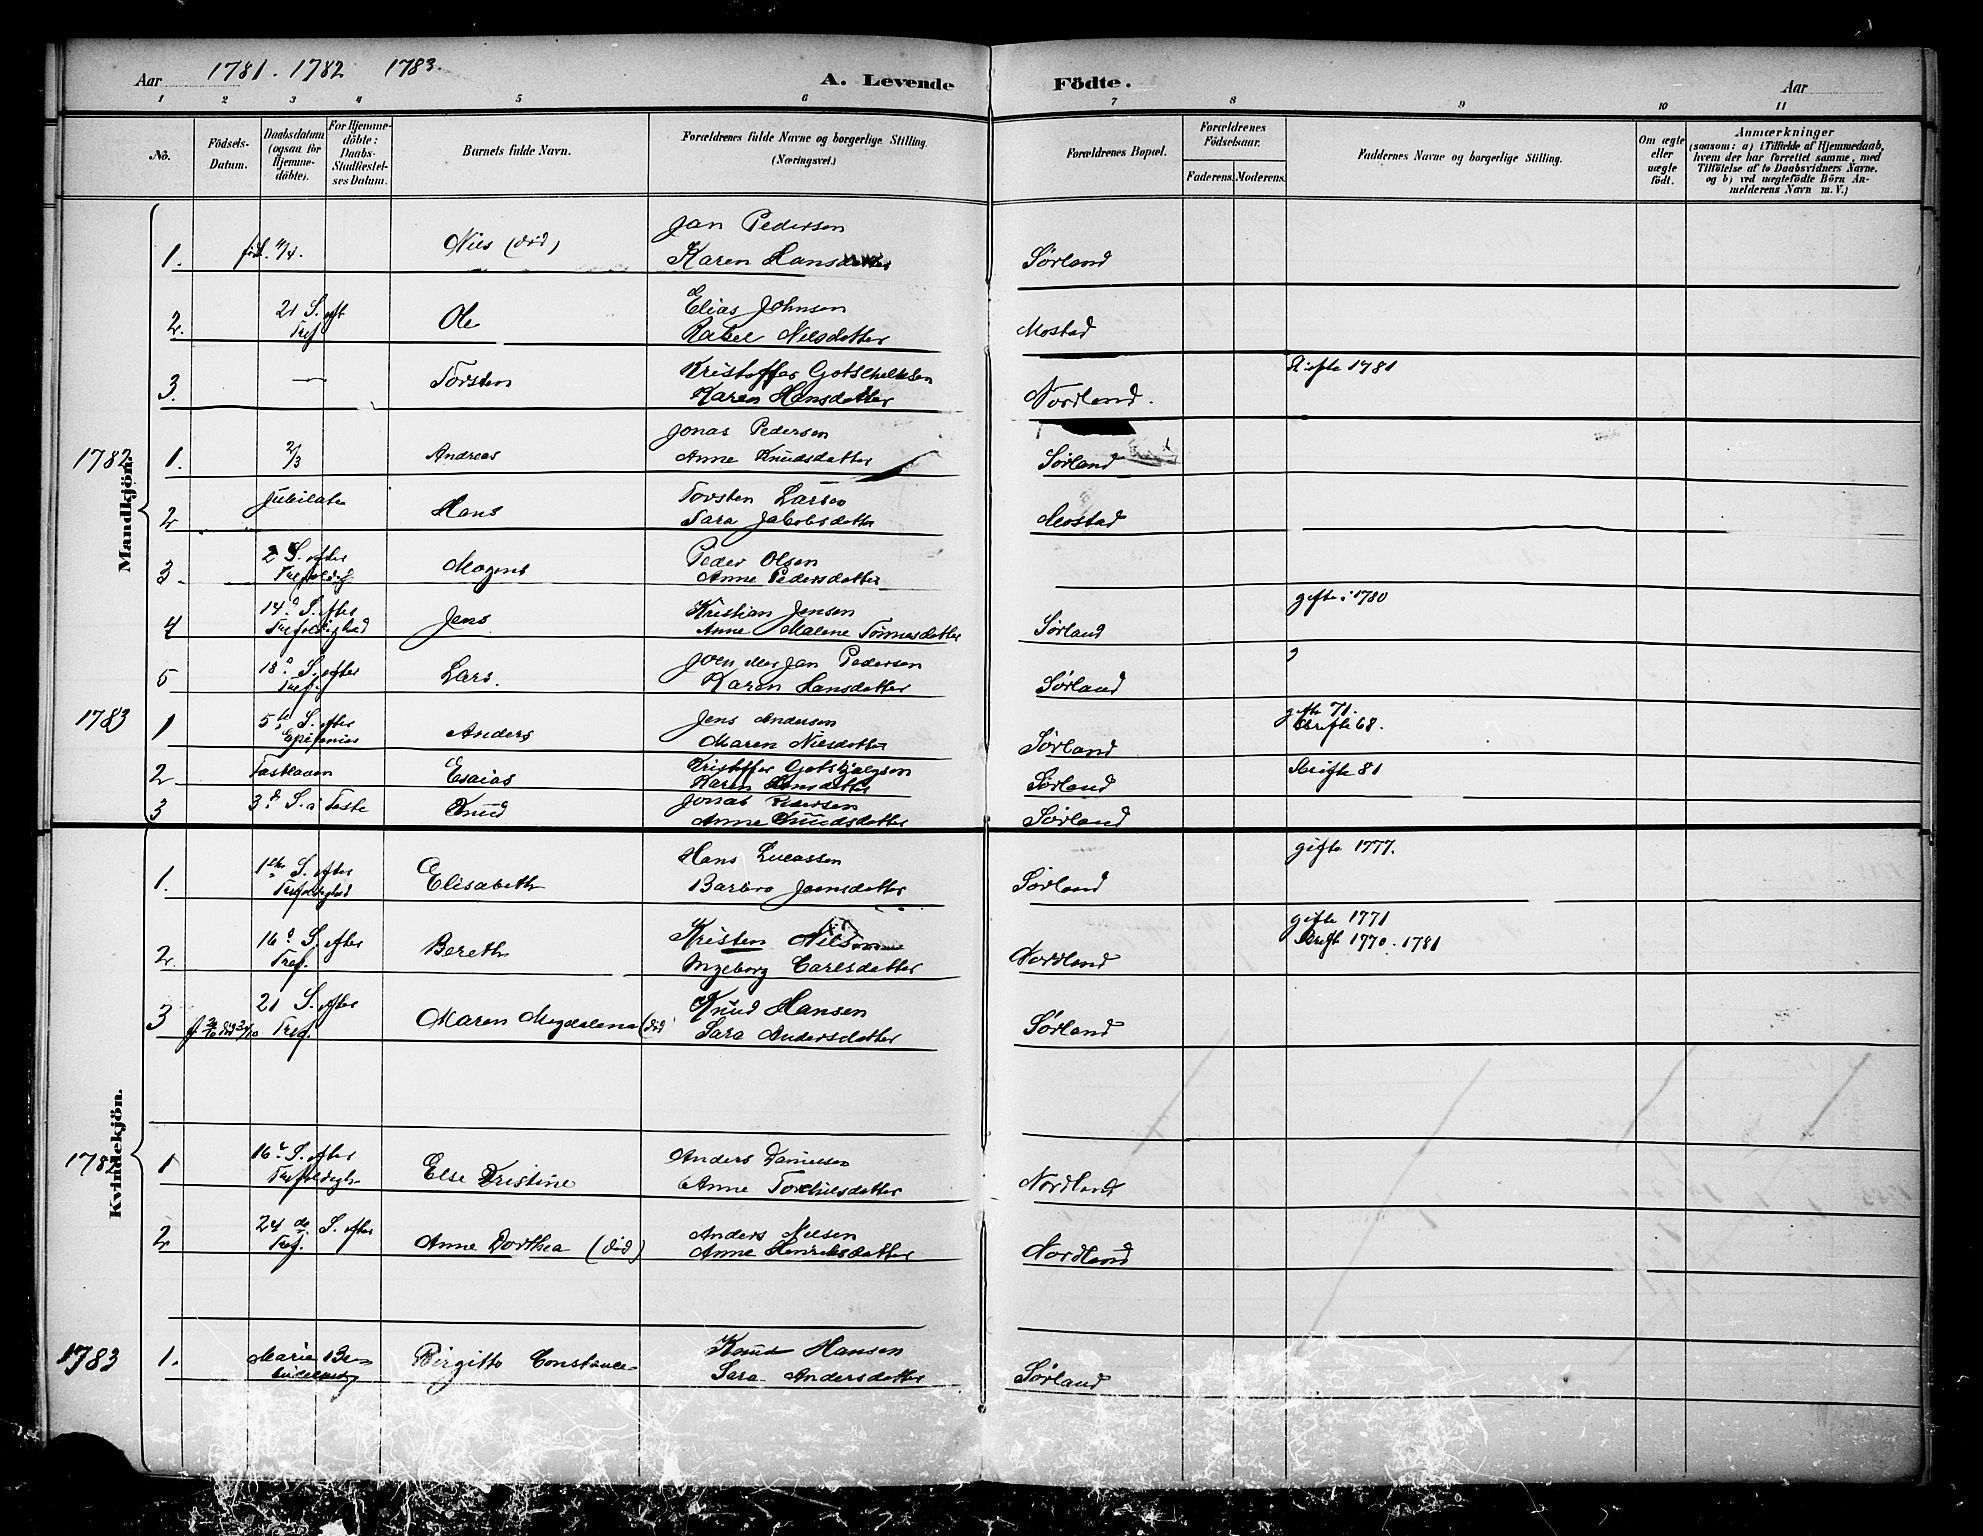 Aar 1781. 1782 1783.
A. Levende Födte.
Aar
1 2 3 4 5 6 7 8 9 10 11
Nô.
Födsels-Datum.
Daabsdatum (ogsaa for Hjemme-döbte).
For Hjemme-döbte: Daabs-Stadfæstel-ses Datum.
Barnets fulde Navn.
Forældrenes fulde Navne og borgerlige Stilling. (Næringsvei.)
Forældrenes Bopæl.
Forældrenes Födselsaar.
Faderens. Moderens.
Faddernes Navne og borgerlige Stilling.
Om ægte eller uægte födt.
Anmærkninger (saasom: a) i Tilfælde af Hjemmedaab, hvem der har forrettet samme, med Tilföielse af to Daabsvidners Navne, og b) ved uægtefödte Börn An-melderens Navn m. V.)
Mandkjön.
1. Nils (död) Jan Pedersen
Karen Hansdatter Sørland
2. 21 S. eft Tref Ole Elias Johnsen
Rakel Nilsdatter Mostad
3. — Torsten Kristoffer Gotschalksen Skrifte 1781
Karen Hansdatter Nordland.
1782 1. 2/3 Andreas Jonas Pedersen
Anne Knudsdatter Sørland
2 Jubilate Hans Torsten Larsen
Sara Jakobsdatter Mostad
3 2 S. efter Trefoldigh Mogens Peder Olsen
Anne Pedersdatter
4 14d S. efter Trefoldighed Jens Kristian Jensen gifte i 1780
Anne Malene Tönnesdatter Sørland
5 18d S. efter Tref. Lars. Joen eller Jan Pedersen ?
Karen Hansdatter Sørland
1783 1 5te S. efter Epifanias Anders Jens Andersen gifte 71.
Maren Nilsdatter Sørland Skrifte 68.
2 Fastlaven Esaias Kristoffer Gotskjalksen Skrifte 81
Karen Hansdatter Sørland
3 3d S. i Faste Knud Jonas Pedersen
Anne Knudsdatter Sørland
Kvindekjön.
1. 1ste S. efter Trefoldighed Elisabeth Hans Lucassen gifte 1777.
Barbro Joensdatter Sørland
2. 16d S. efter Tref. Bereth Kristen Nilsen gifte 1771
Ingeborg Carlsdatter Nordland Skrift 1770. 1781
3 21 S. efter Tref. Maren Magdalena (död) Knud Hansen
Sara Andersdatter Sørland
1782 1 16d S. efter Trefoldigh Else Kristine Anders Danielsen
Anne Torkilsdatter Nordland
2 24de S. efter Tref. Anne Dorthea (död) Anders Nilsen
Anne Henriksdatter Nordland
1783 1. Marie Be- Birgitte Constance Knud Hansen
Sara Andersdatter Sørland